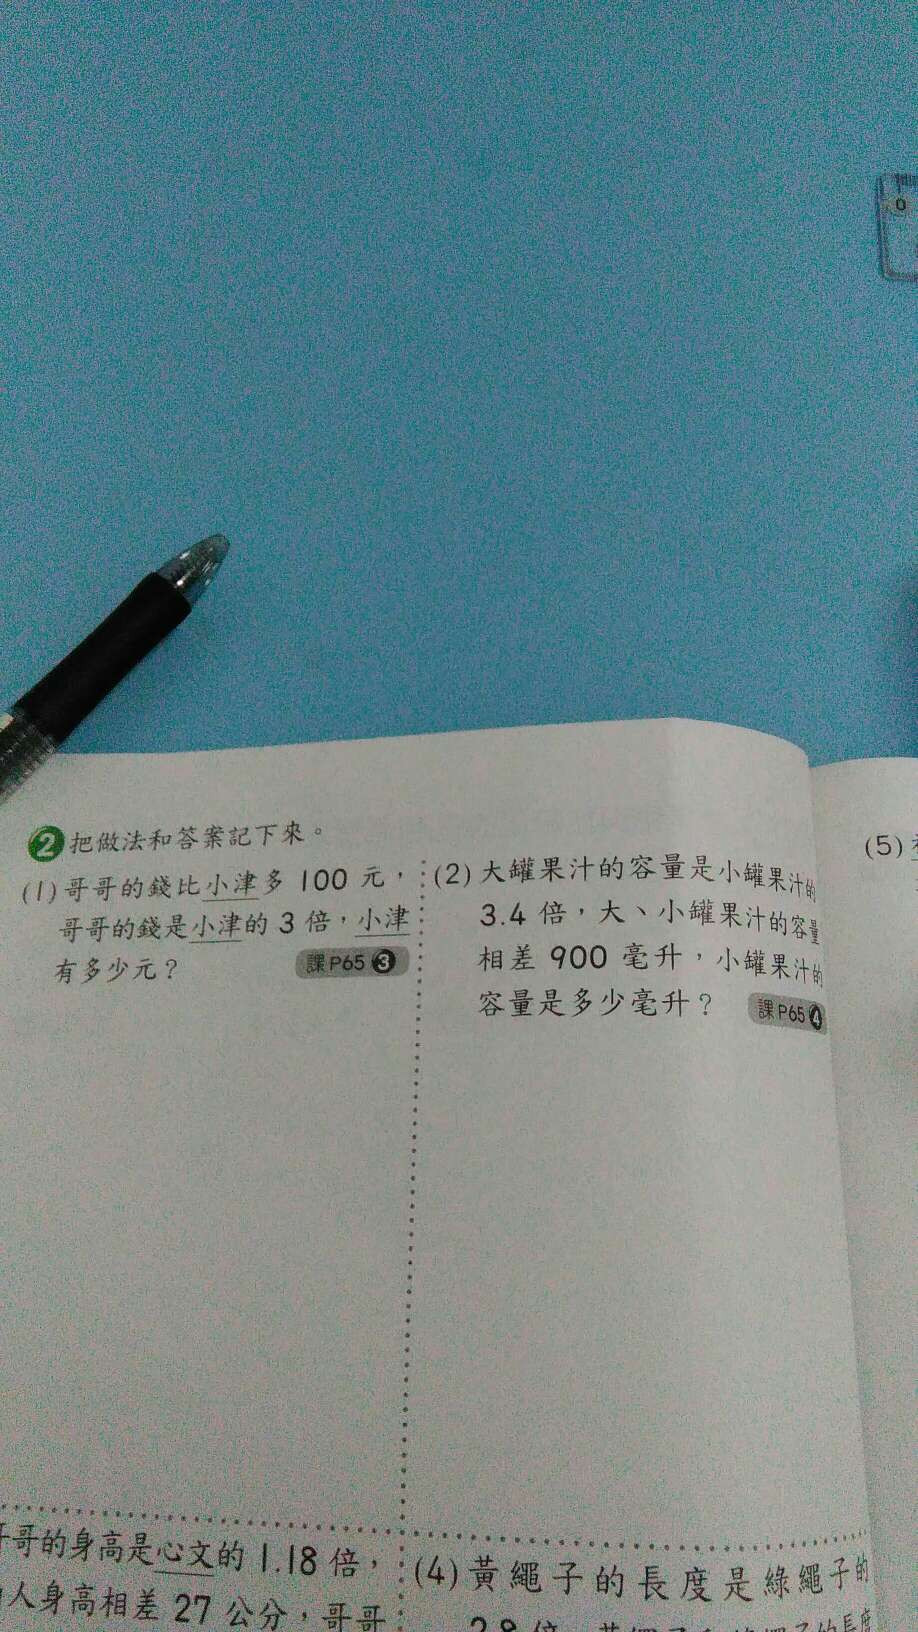 0
2 把做法和答案記下來。
(1) 哥哥的錢比小津多 100 元，
哥哥的錢是小津的 3 倍，小津
有多少元？ 課P65 3
(2) 大罐果汁的容量是小罐果汁的
3.4 倍，大、小罐果汁的容量
相差 900 毫升，小罐果汁的
容量是多少毫升？ 課P65 4
哥的身高是心文的 1.18 倍，
人身高相差 27 公分，哥哥
(4) 黃繩子的長度是綠繩子的
(5)